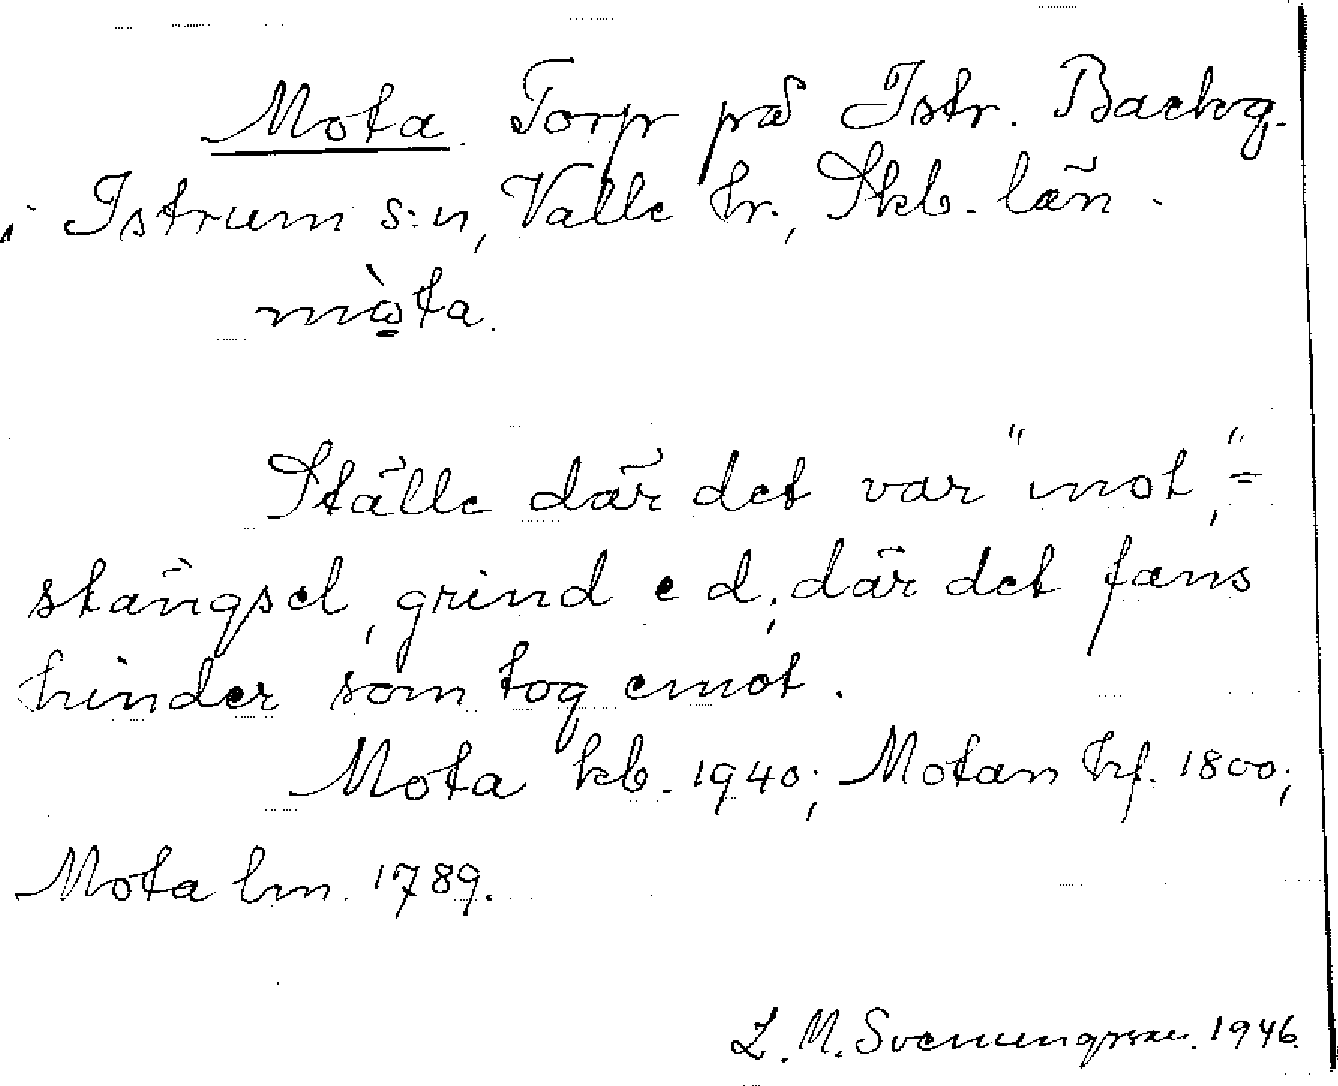 Mota. Torp på Istr. Backg.
i Istrum s:n, Valle hr., Skb. län.
mɷ̀ta.
Ställe där det var "mot," =
stängsel, grind e d; där det fans
hinder som tog emot.
Mota kb. 1940; Motan hf. 1800;
Mota lm. 1789.
L. M. Svenungsson. 1946.